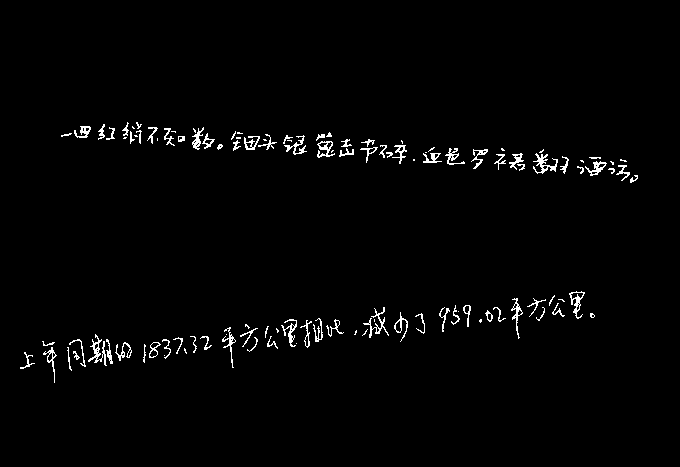 一曲红绡不知数。钿头银篦击节碎,血色罗裙翻酒污。
上年同期的1837.32平方公里相比,减少了959.02平方公里。